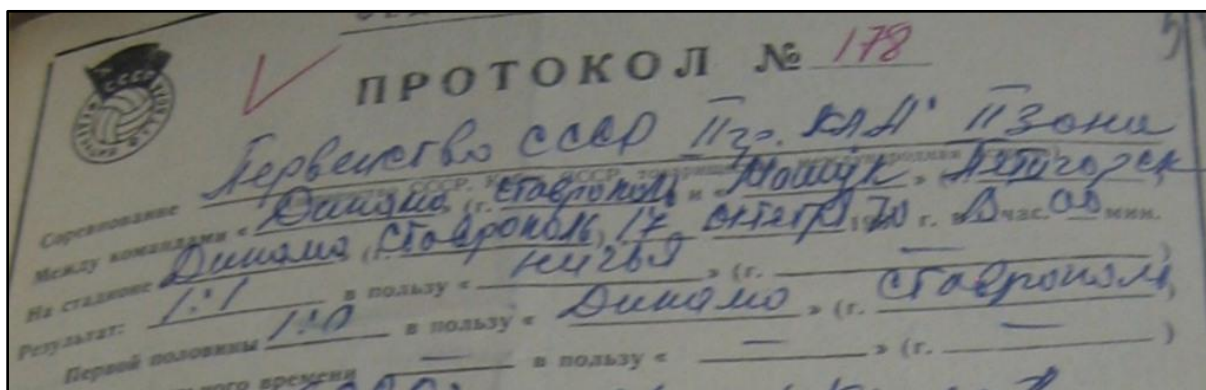 СССР
ПРОТОКОЛ № 178
Соревнование Первенство СССР II гр. кл "А" II зона
Между командами «Динамо» (г. Ставрополь и «Машук» (Пятигорск)
На стадионе Динамо (г. Ставрополь) 17 октября 1970 г. в час. 00 мин.
Результат: 1:1 в пользу « ничья » (г. — )
Первой половины 1:0 в пользу « Динамо » (г. Ставрополь)
времени — в пользу « — » (г. — )